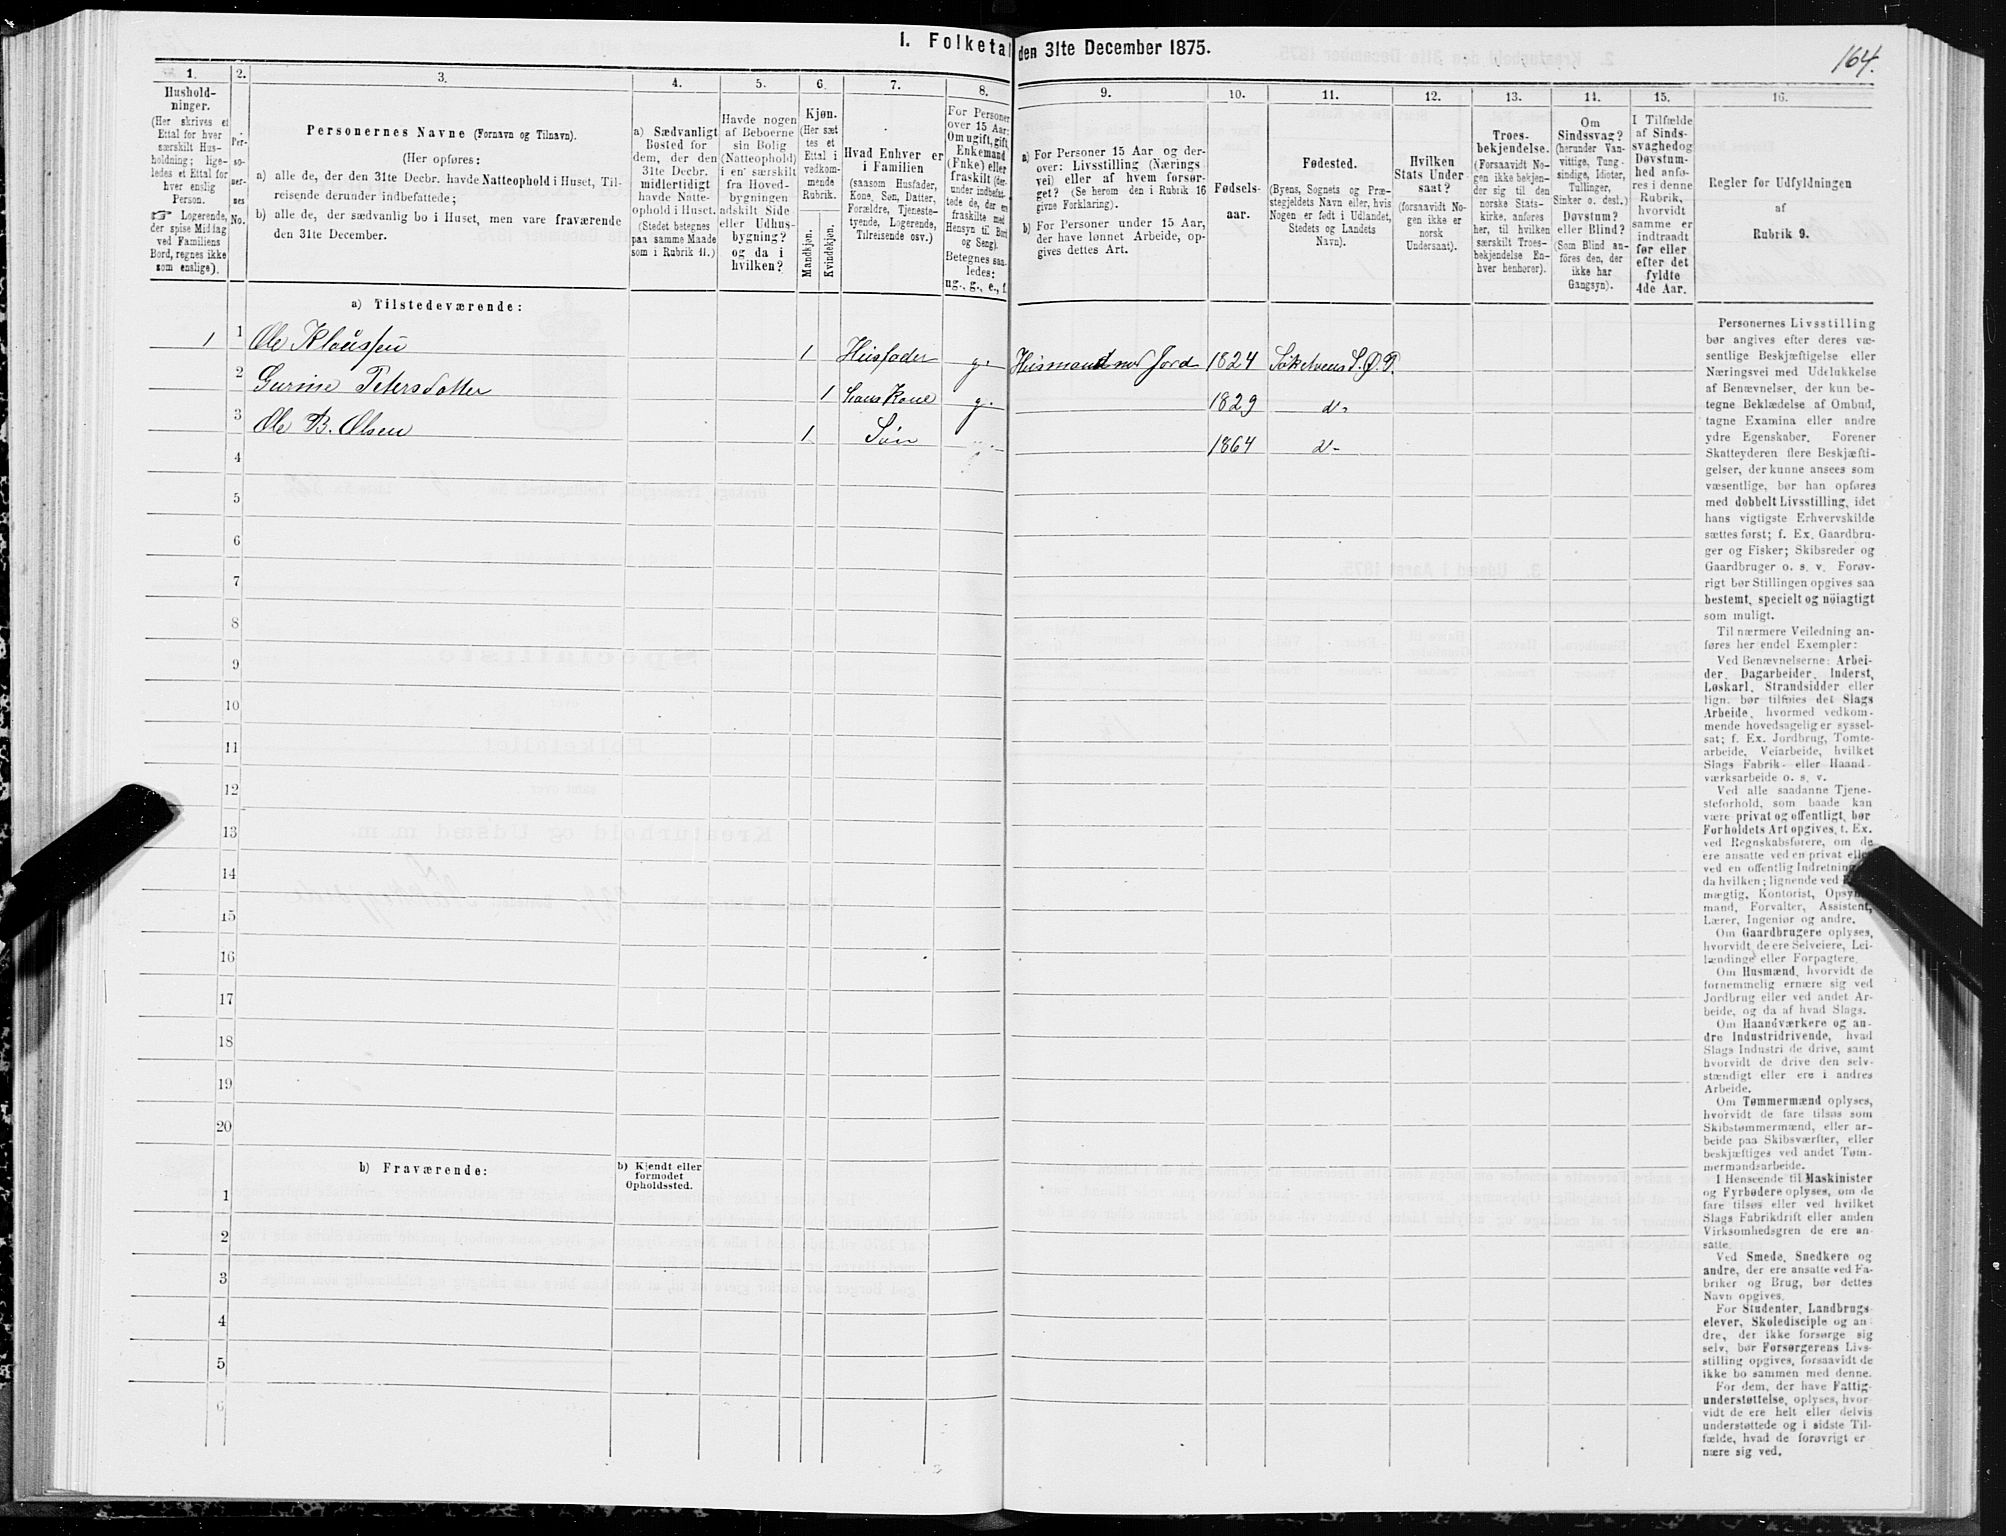 1. Folketal den 31te December 1875.
164.
1.
2.
3.
4.
5.
6.
7.
8.
9.
10.
11.
12.
13.
14.
15.
16.
Hushold-
ninger.
(Her skrives et
Ettal for hver
særskilt Hus-
holdning; lige-
ledes et Ettal for
hver enslig
Person.
☞ Logerende,
der spise Middag
ved Familiens
Bord, regnes ikke
som enslige).
Per-
so-
ner-
nes
No.
Personernes Navne (Fornavn og Tilnavn).
(Her opføres:
a) alle de, der den 31te Decbr. havde Natteophold i Huset, Til-
reisende derunder indbefattede;
b) alle de, der sædvanlig bo i Huset, men vare fraværende
den 31te December.
a) Sædvanligt
Bosted for
dem, der den
31te Decbr.
midlertidigt
havde Natte-
ophold i Huset.
(Stedet betegnes
paa samme Maade
som i Rubrik 11.)
Havde nogen
af Beboerne
sin Bolig
(Natteophold)
i en særskilt
fra Hoved-
bygningen
adskilt Side
eller Udhus-
bygning?
og da i
hvilken?
Kjøn.
(Her sæt-
tes et
Ettal i
vedkom-
mende
Rubrik.
Mandkjøn.
Kvindekjøn.
Hvad Enhver er
i Familien
(saasom Husfader,
Kone, Søn, Datter,
Forældre, Tjeneste-
tyende, Logerende,
Tilreisende osv.)
For Personer
over 15 Aar:
Om ugift, gift,
Enkemand
(Enke) eller
fraskilt (der-
under indbefat-
tede de, der ere
fraskilte med
Hensyn til Bord
og Seng).
Betegnes saa-
ledes:
ug., g., e., f.
a) For Personer 15 Aar og der-
over: Livsstilling (Nærings
vei) eller af hvem forsør-
get? (Se herom den i Rubrik 16
givne Forklaring).
b) For Personer under 15 Aar,
der have lønnet Arbeide, op-
gives dettes Art.
Fødsels-
aar.
Fødested.
(Byens, Sognets og Præ-
stegjeldets Navn eller, hvis
Nogen er født i Udlandet,
Stedets og Landets
Navn).
Hvilken
Stats Under
saat?
(forsaavidt No-
gen ikke er
norsk
Undersaat).
Troes-
bekjendelse.
(Forsaavidt No-
gen ikke bekjen-
der sig til den
norske Stats-
kirke, anføres
her, til hvilken
særskilt Troes-
bekjendelse En-
hver henhører).
Om
Sindssvag?
(herunder Van-
vittige, Tung-
sindige, Idioter,
Tullinger,
Sinker o. desl.)
Døvstum?
eller Blind?
(Som Blind an-
føres den, der
ikke har
Gangsyn).
I Tilfælde
af Sinds-
svaghed og
Døvstum-
hed anfø-
res i denne
Rubrik,
hvorvidt
samme er
indtraadt
før eller
efter det
fyldte
4de Aar.
Regler for Udfyldningen
af
Rubrik 9.
a) Tilstedeværende:
1 1 Ole Klaussen 1 Husfader g. Husmand med Jord 1824 S. Ø. P.
2 Gurine Petersdotter 1 hans Kone g. 1829 d-
3 Ole B. Olsen 1 Søn 1864 d-
4
5
6
7
8
9
10
11
12
13
14
15
16
17
18
19
20
b) Fraværende:
b) Kjendt eller
formodet
Opholdssted.
1
2
3
4
5
6
Personernes Livsstilling
bør angives efter deres væ-
sentlige Beskjæftigelse eller
Næringsvei med Udelukkelse
af Benævnelser, der kun be-
tegne Beklædelse af Ombud,
tagne Examina eller andre
ydre Egenskaber. Forener
Skatteyderen flere Beskjæfti-
gelser, der kunne ansees som
væsentlige, bør han opføres
med dobbelt Livsstilling, idet
hans vigtigste Erhvervskilde
sættes først; f. Ex. Gaardbru-
ger og Fisker; Skibsreder og
Gaardbruger o. s. v. Forøv-
rigt bør Stillingen opgives saa
bestemt, specielt og nöiagtigt
som muligt.
Til nærmere Veiledning an-
føres her endel Exempler:
Ved Benævnelserne: Arbei-
der, Dagarbeider, Inderst,
Løskarl, Strandsidder eller
lign. bør tilføies det Slags
Arbeide, hvormed vedkom-
mende hovedsagelig er syssel-
sat; f. Ex. Jordbrug, Tomte-
arbeide, Veiarbeide, hvilket
Slags Fabrik- eller Haand
værksarbeide o. s. v.
Ved alle saadanne Tjene-
steforhold, som baade kan
være privat og offentligt, bør
Forholdets Art opgives, f. Ex.
ved Regnskabsførere, om de
ere ansatte ved en privat eller
ved en offentlig Indretning
da hvilken; lignende ved
mægtig, Kontorist, Opsyns
mand, Forvalter, Assistent,
Lærer, Ingeniør og andre.
Om Gaardbrugere oplyses,
hvorvidt de ere Selveiere, Lei-
lændinge eller Forpagtere.
Om Husmænd, hvorvidt de
fornemmelig ernære sig ved
Jordbrug eller ved andet Ar-
beide, og da af hvad Slags.
Om Haandværkere og an-
dre Industridrivende, hvad
Slags Industri de drive, samt
hvorvidt de drive den selv-
stændigt eller ere i andres
Arbeide.
Om Tømmermænd oplyses,
hvorvidt de fare tilsøs som
Skibstømmermænd, eller ar-
beide paa Skibsværfter, eller
beskjæftiges ved andet Tøm-
mermandsarbeide.
I Henseende til Maskinister
og Fyrbødere oplyses, om de
fare tilsøs eller ved hvilket
Slags Fabrikdrift eller anden
Virksomhedsgren de ere an-
satte.
Ved Smede, Snedkere og
andre, der ere ansatte ved Fa-
briker og Brug, bør dettes
Navn opgives.
For Studenter, Landbrugs-
elever, Skoledisciple og an-
dre, der ikke forsørge sig
selv, bør Forsørgerens Livs-
stilling opgives, forsaavidt de
ikke bo sammen med denne.
For dem, der have Fattig-
understøttelse, oplyses, hvor-
vidt de ere helt eller delvis
understøttede og i sidste Til-
fælde, hvad de forøvrigt er
nære sig ved.